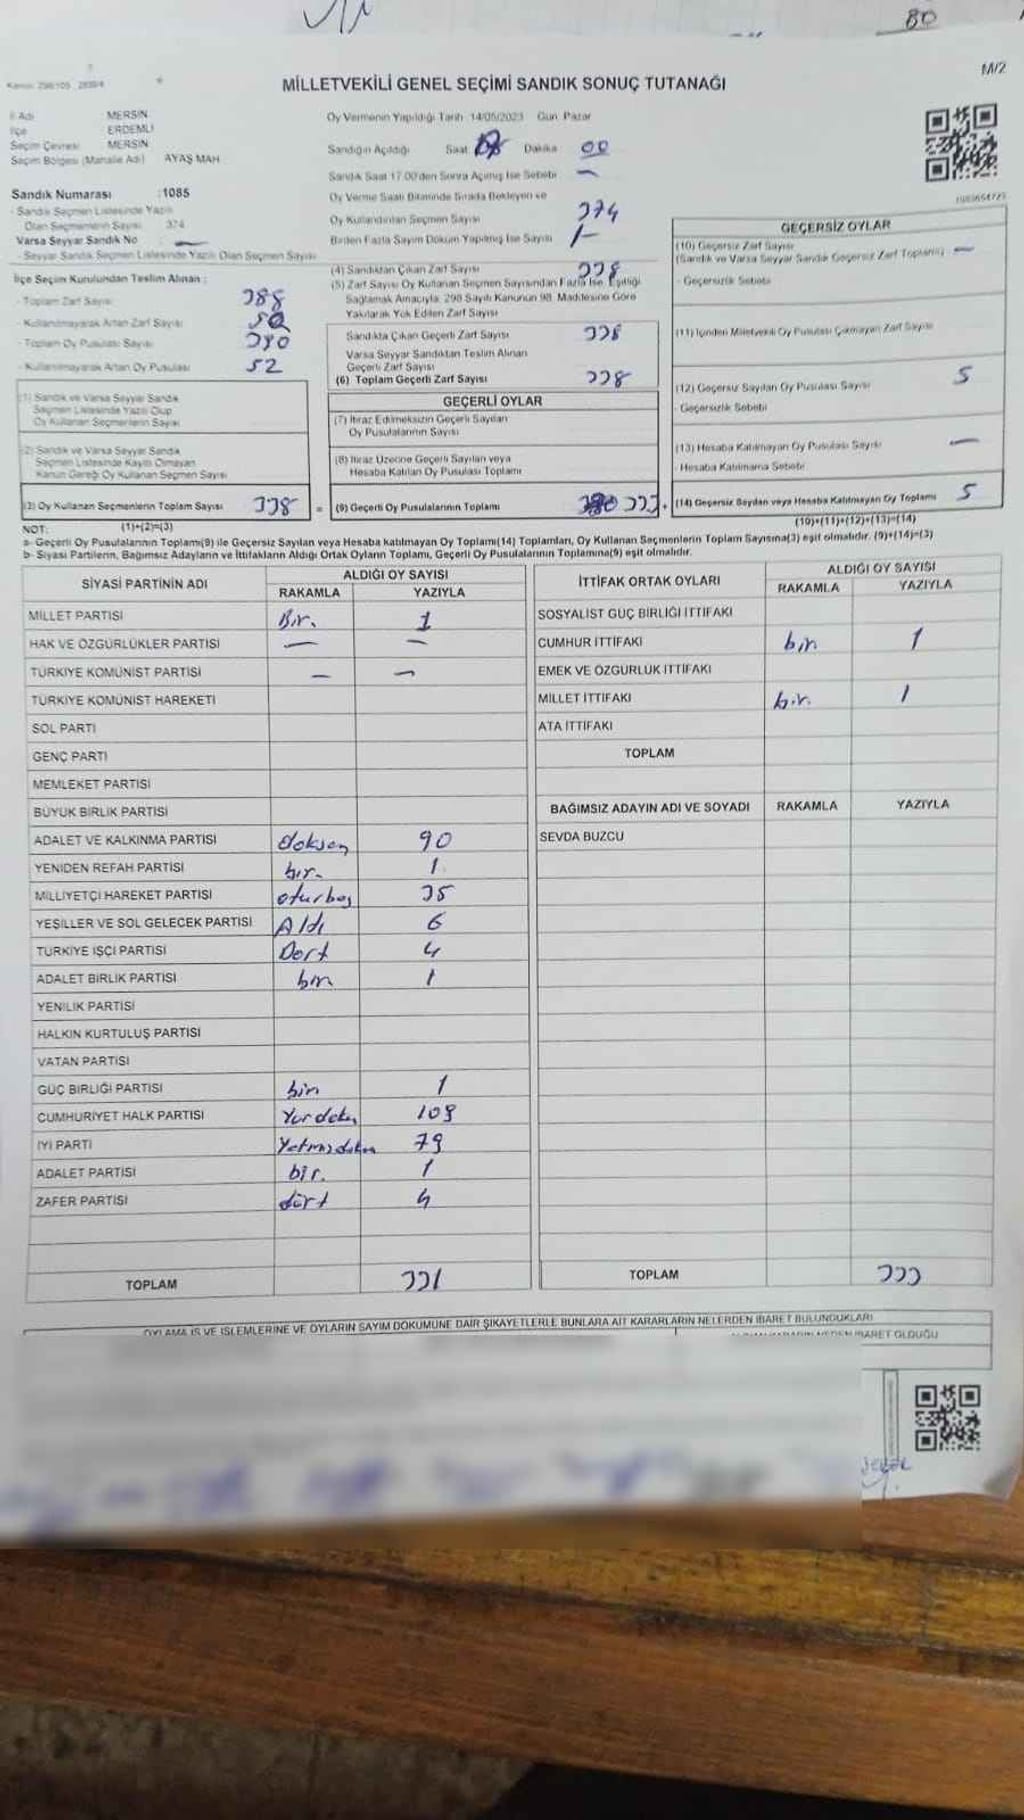 80
M/2
MİLLETVEKİLİ GENEL SEÇİMİ SANDIK SONUÇ TUTANAĞI
İl Adı : MERSİN
İlçe : ERDEMLİ
Seçim Çevresi : MERSİN
Seçim Bölgesi (Mahalle Adı) AYAŞ MAH.
Sandık Numarası :1085
- Sandık Seçmen Listesinde Yazılı
Olan Seçmenlerin Sayısı 374
Varsa Seyyar Sandık No —
- Seyyar Sandık Seçmen Listesinde Yazılı Olan Seçmen Sayısı
İlçe Seçim Kurulundan Teslim Alınan :
- Toplam Zarf Sayısı 388
- Kullanılmayarak Artan Zarf Sayısı 50
- Toplam Oy Pusulası Sayısı 390
- Kullanılmayarak Artan Oy Pusulası 52
(1) Sandık ve Varsa Seyyar Sandık
Seçmen Listesinde Yazılı Olup
Oy Kullanan Seçmenlerin Sayısı
(2) Sandık ve Varsa Seyyar Sandık
Seçmen Listesinde Kayıtlı Olmayan
Kanun Gereği Oy Kullanan Seçmen Sayısı
(3) Oy Kullanan Seçmenlerin Toplam Sayısı 338
(1)+(2)=(3)
Oy Vermenin Yapıldığı Tarih 14/05/2023 Gün Pazar
Sandığın Açıldığı Saat Dakika 00
Sandık Saat 17.00'den Sonra Açılmış İse Sebebi —
Oy Verme Saati Bitiminde Sırada Bekleyen ve
Oy Kullandırılan Seçmen Sayısı 374
Birden Fazla Sayım Döküm Yapılmış İse Sayısı 1-
(4) Sandıktan Çıkan Zarf Sayısı 338
(5) Zarf Sayısı Oy Kullanan Seçmen Sayısından Fazla İse, Eşitliği
Sağlamak Amacıyla, 298 Sayılı Kanunun 98. Maddesine Göre
Yakılarak Yok Edilen Zarf Sayısı
Sandıkta Çıkan Geçerli Zarf Sayısı 338
Varsa Seyyar Sandıktan Teslim Alınan
Geçerli Zarf Sayısı
(6) Toplam Geçerli Zarf Sayısı 338
GEÇERLİ OYLAR
(7) İtiraz Edilmeksizin Geçerli Sayılan
Oy Pusulalarının Sayısı
(8) İtiraz Üzerine Geçerli Sayılan veya
Hesaba Katılan Oy Pusulası Toplamı
= (9) Geçerli Oy Pusulalarının Toplamı 333 +
GEÇERSİZ OYLAR
(10) Geçersiz Zarf Sayısı
(Sandık ve Varsa Seyyar Sandık Geçersiz Zarf Toplamı) —
- Geçersizlik Sebebi
(11) İçinden Milletvekili Oy Pusulası Çıkmayan Zarf Sayısı
(12) Geçersiz Sayılan Oy Pusulası Sayısı 5
- Geçersizlik Sebebi
(13) Hesaba Katılmayan Oy Pusulası Sayısı —
- Hesaba Katılmama Sebebi
(14) Geçersiz Sayılan veya Hesaba Katılmayan Oy Toplamı 5
(10)+(11)+(12)+(13)=(14)
NOT:
a- Geçerli Oy Pusulalarının Toplamı(9) ile Geçersiz Sayılan veya Hesaba katılmayan Oy Toplamı(14) Toplamları, Oy Kullanan Seçmenlerin Toplam Sayısına(3) eşit olmalıdır. (9)+(14)=(3)
b- Siyasi Partilerin, Bağımsız Adayların ve İttifakların Aldığı Ortak Oyların Toplamı, Geçerli Oy Pusulalarının Toplamına(9) eşit olmalıdır.
SİYASİ PARTİNİN ADI ALDIĞI OY SAYISI
RAKAMLA YAZIYLA
MİLLET PARTİSİ Bir. 1
HAK VE ÖZGÜRLÜKLER PARTİSİ — —
TÜRKİYE KOMÜNİST PARTİSİ — —
TÜRKİYE KOMÜNİST HAREKETİ
SOL PARTİ
GENÇ PARTİ
MEMLEKET PARTİSİ
BÜYÜK BİRLİK PARTİSİ
ADALET VE KALKINMA PARTİSİ doksan 90
YENİDEN REFAH PARTİSİ bir. 1
MİLLİYETÇİ HAREKET PARTİSİ oturbeş 35
YEŞİLLER VE SOL GELECEK PARTİSİ Aldı 6
TÜRKİYE İŞÇİ PARTİSİ Dort 4
ADALET BİRLİK PARTİSİ bir 1
YENİLİK PARTİSİ
HALKIN KURTULUŞ PARTİSİ
VATAN PARTİSİ
GÜÇ BİRLİĞİ PARTİSİ bir 1
CUMHURİYET HALK PARTİSİ 109
İYİ PARTİ 79
ADALET PARTİSİ bir. 1
ZAFER PARTİSİ dört 4
TOPLAM 331
İTTİFAK ORTAK OYLARI ALDIĞI OY SAYISI
RAKAMLA YAZIYLA
SOSYALİST GÜÇ BİRLİĞİ İTTİFAKI
CUMHUR İTTİFAKI bir 1
EMEK VE ÖZGÜRLÜK İTTİFAKI
MİLLET İTTİFAKI bir. 1
ATA İTTİFAKI
TOPLAM
BAĞIMSIZ ADAYIN ADI VE SOYADI RAKAMLA YAZIYLA
SEVDA BUZCU
TOPLAM 333
OYLAMA İŞ VE İŞLEMLERİNE VE OYLARIN SAYIM DÖKÜMÜNE DAİR ŞİKAYETLERLE BUNLARA AİT KARARLARIN NELERDEN İBARET BULUNDUKLARI
İBARET OLDUĞU